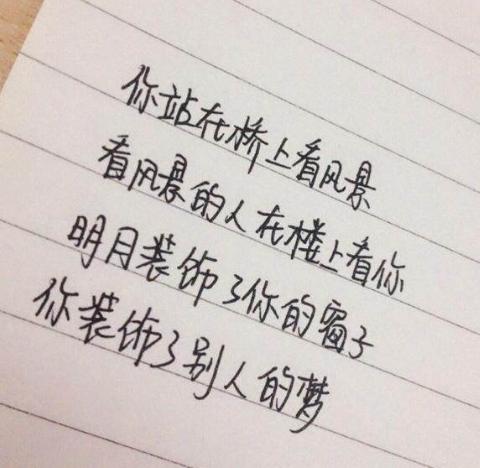 你站在桥上看风景
看风景的人在楼上看你
明月装饰了你的窗子
你装饰了别人的梦